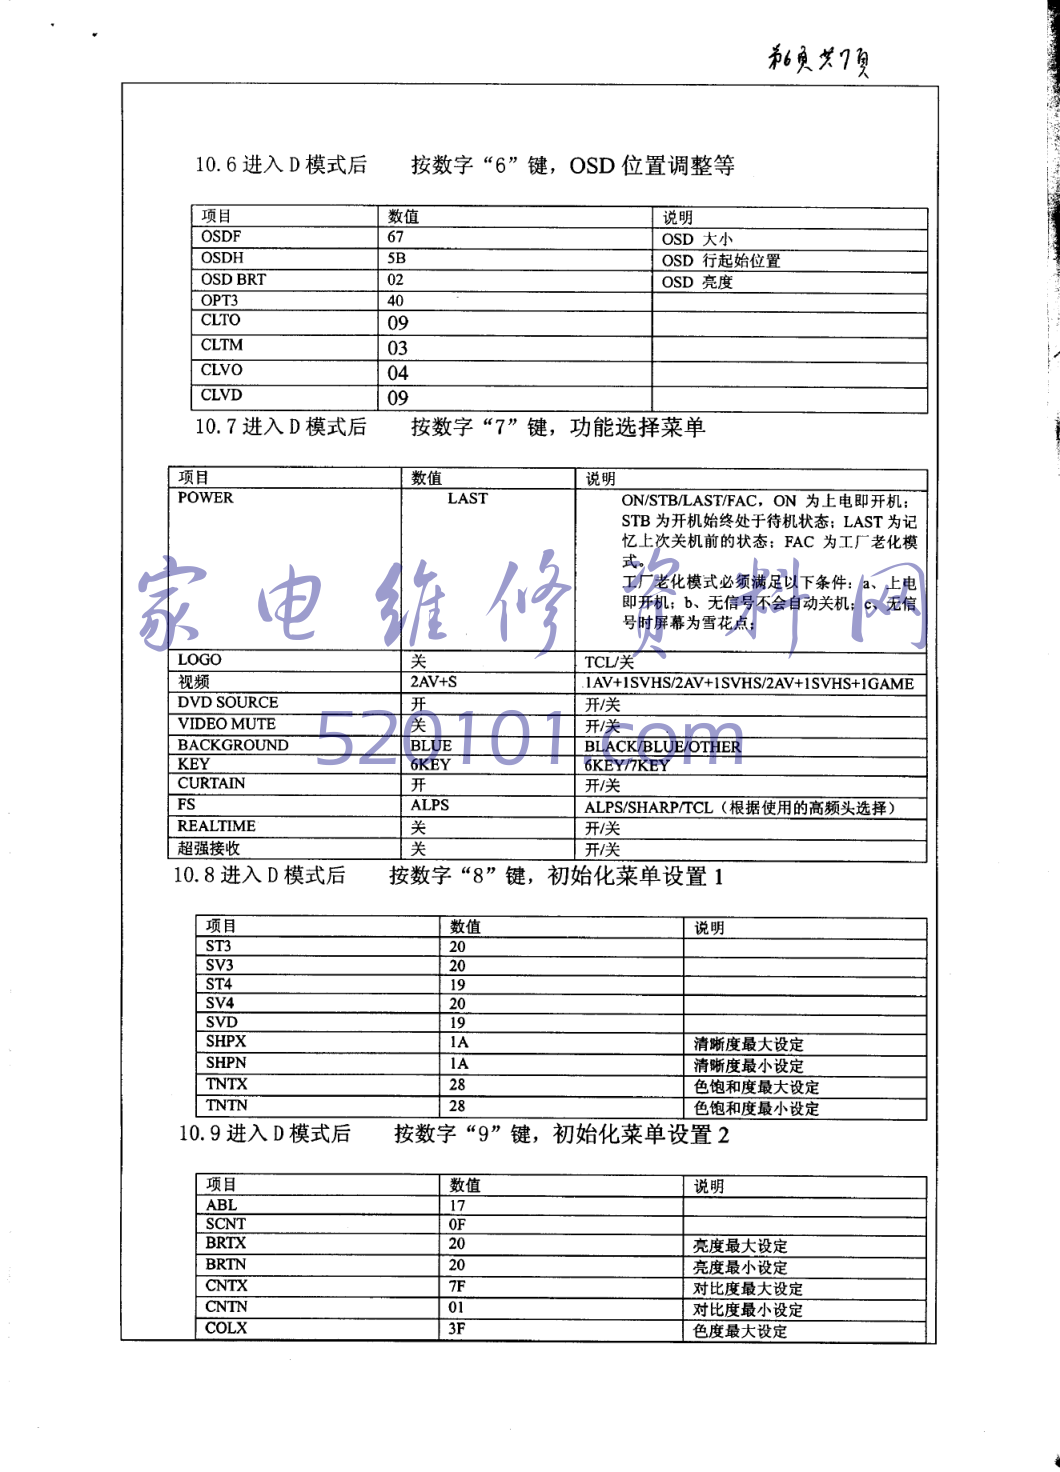 第6页共7页
10.6进入D模式后 按数字“6”键，OSD位置调整等
项目 数值 说明
OSDF 67 OSD 大小
OSDH 5B OSD 行起始位置
OSD BRT 02 OSD 亮度
OPT3 40
CLTO 09
CLTM 03
CLVO 04
CLVD 09
10.7进入D模式后 按数字“7”键，功能选择菜单
项目 数值 说明
POWER LAST ON/STB/LAST/FAC，ON 为上电即开机；
STB为开机始终处于待机状态；LAST为记
忆上次关机前的状态；FAC 为工厂老化模
式。
工厂老化模式必须满足以下条件：a、上电
即开机；b、无信号不会自动关机；c、无信
号时屏幕为雪花点；
LOGO 关 TCL/关
视频 2AV+S 1AV+1SVHS/2AV+1SVHS/2AV+1SVHS+1GAME
DVD SOURCE 开 开/关
VIDEO MUTE 关 开/关
BACKGROUND BLUE BLACK/BLUE/OTHER
KEY 6KEY 6KEY/7KEY
CURTAIN 开 开/关
FS ALPS ALPS/SHARP/TCL（根据使用的高频头选择）
REALTIME 关 开/关
超强接收 关 开/关
家电维修资料网
520101.com
10.8进入D模式后 按数字“8”键，初始化菜单设置1
项目 数值 说明
ST3 20
SV3 20
ST4 19
SV4 20
SVD 19
SHPX 1A 清晰度最大设定
SHPN 1A 清晰度最小设定
TNTX 28 色饱和度最大设定
TNTN 28 色饱和度最小设定
10.9进入D模式后 按数字“9”键，初始化菜单设置2
项目 数值 说明
ABL 17
SCNT 0F
BRTX 20 亮度最大设定
BRTN 20 亮度最小设定
CNTX 7F 对比度最大设定
CNTN 01 对比度最小设定
COLX 3F 色度最大设定